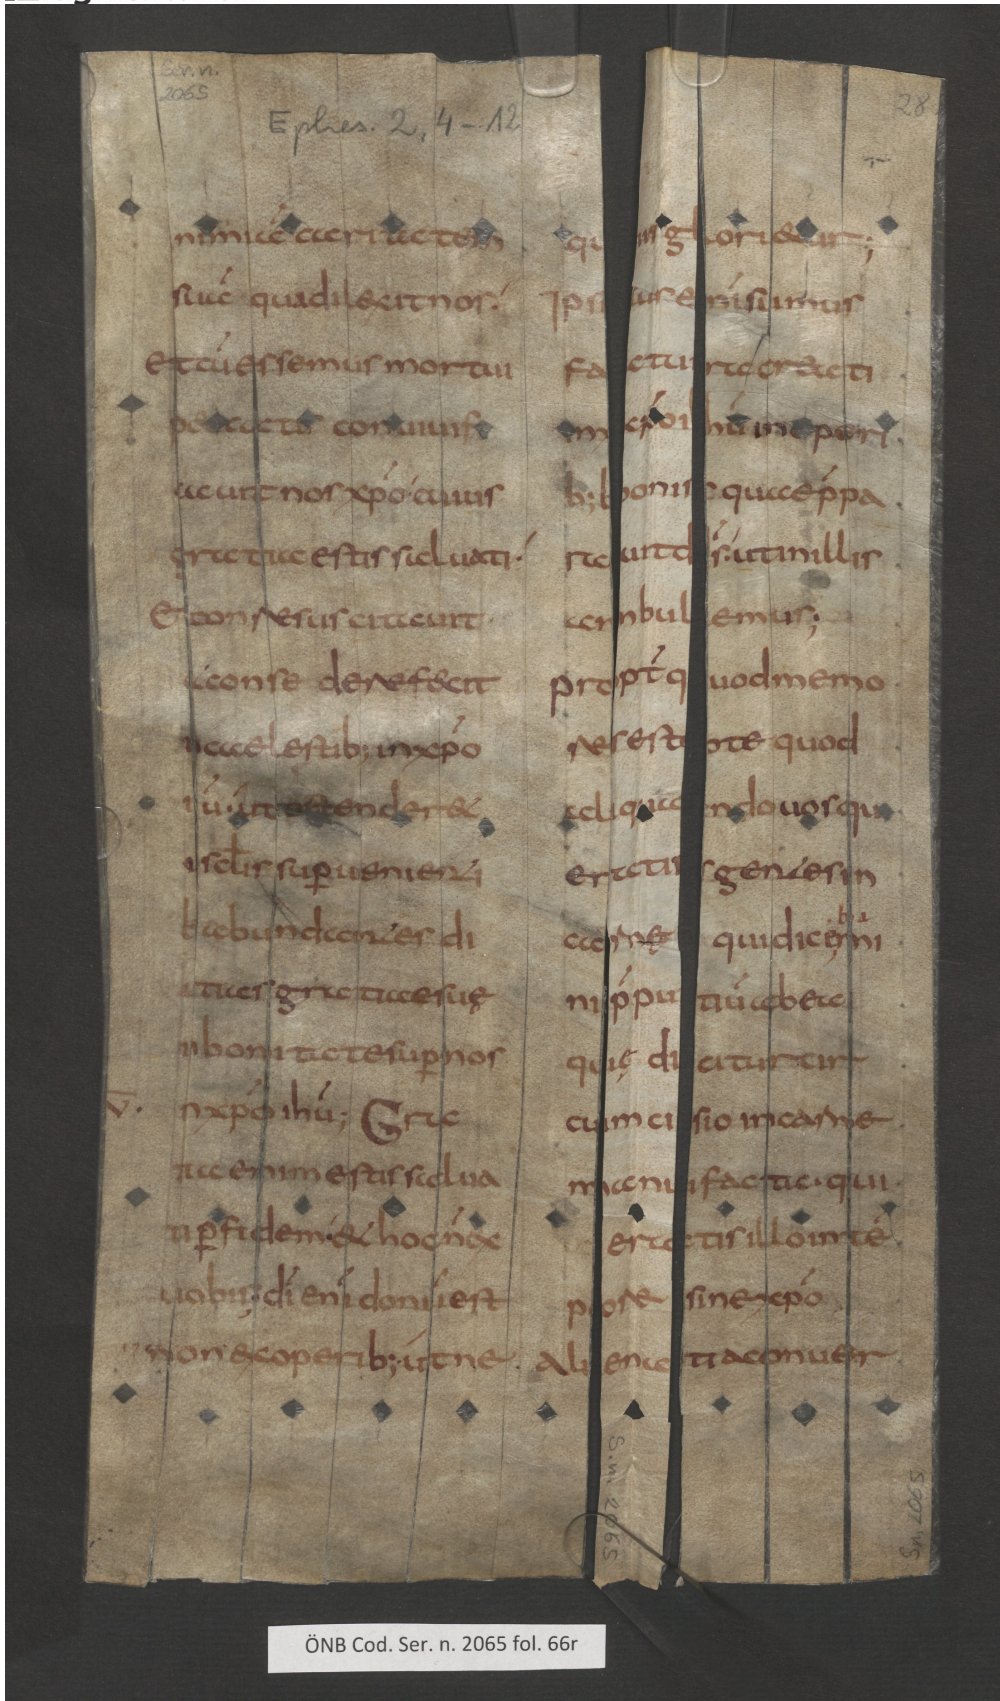 Ser. n.
2065
Ephes. 2, 4-12
28
nimiā caritatem
suā qua dilexit nos.
Et cū essemus mortui
peccatis conuiuifi
cauit nos xpo cuius
gratia estis saluati.
Et conresuscitauit
& conse dere fecit
in caelestib; in xpo
ihu ut ostenderet
in sclis superuenienti
b; abundantes di
uitias gratiae suę
in bonitate super nos
v. in xpo ihu; Gra
tia enim estis salua
ti p fidem. & hoc n ex
uobis; di eni donū est
non ex operib; ut ne
quis glorietur;
Ipsius eni sumus
factura creati
in xpo ihu in operi
b; bonis quae p̄pa
rauit ds. ut in illis
ambulemus;
propt q uod memo
res estote quod
aliquando uos qui
eratis gentes in
carne qui dicemini
ni p̄putiū ab ea
quę dicitur cir
cumcisio in carne
manu facta. qui
eratis illo in te
pore sine xpo
Alienati a conuer
S. n. 2065
Sn. 2065
ÖNB Cod. Ser. n. 2065 fol. 66r